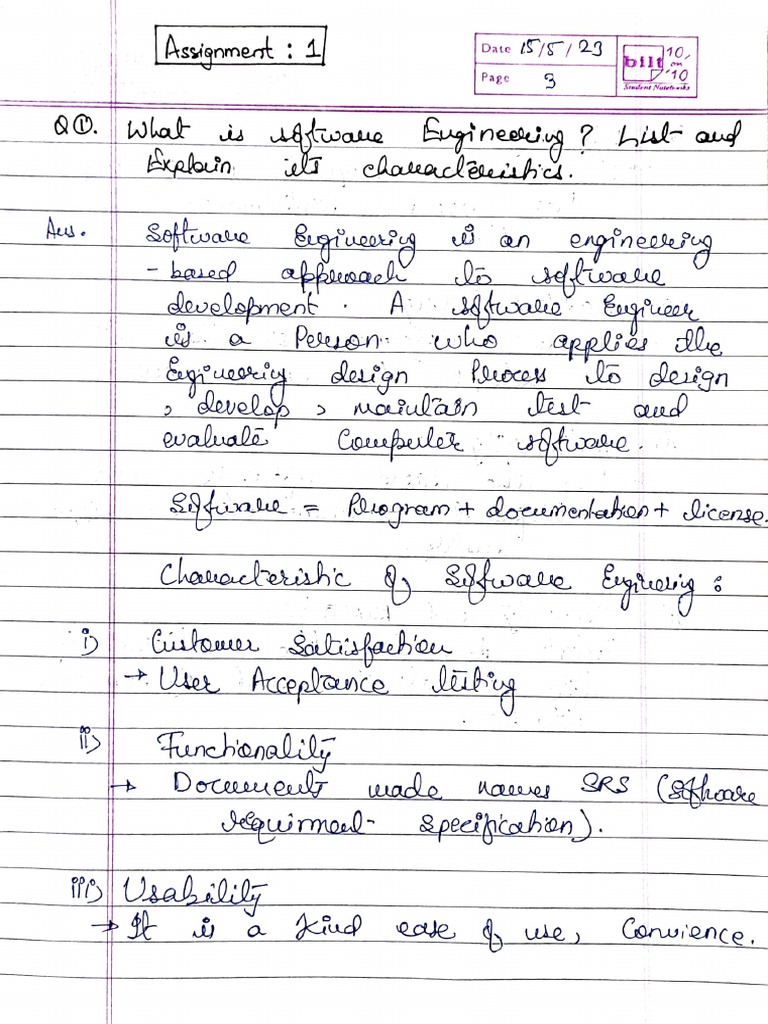 Assignment : 1
Date 15/5/23
Page 3
bilt 10 on 10
Student Notebooks
Q①. What is software Engineering? List and
Explain its characteristics.
Ans. Software Engineering is an engineering
- based approach to software
development. A software Engineer
is a Person who applies the
Engineering design Process to design
, develop, maintain test and
evaluate Computer software.
Software = Program + documentation + license.
Characteristic of Software Enginering :
i) Customer Satisfaction
→ User Acceptance testing
ii) Functionality
→ Document made names SRS (Software
requirment Specification).
iii) Usability
→ It is a Kind ease of use, Convience.